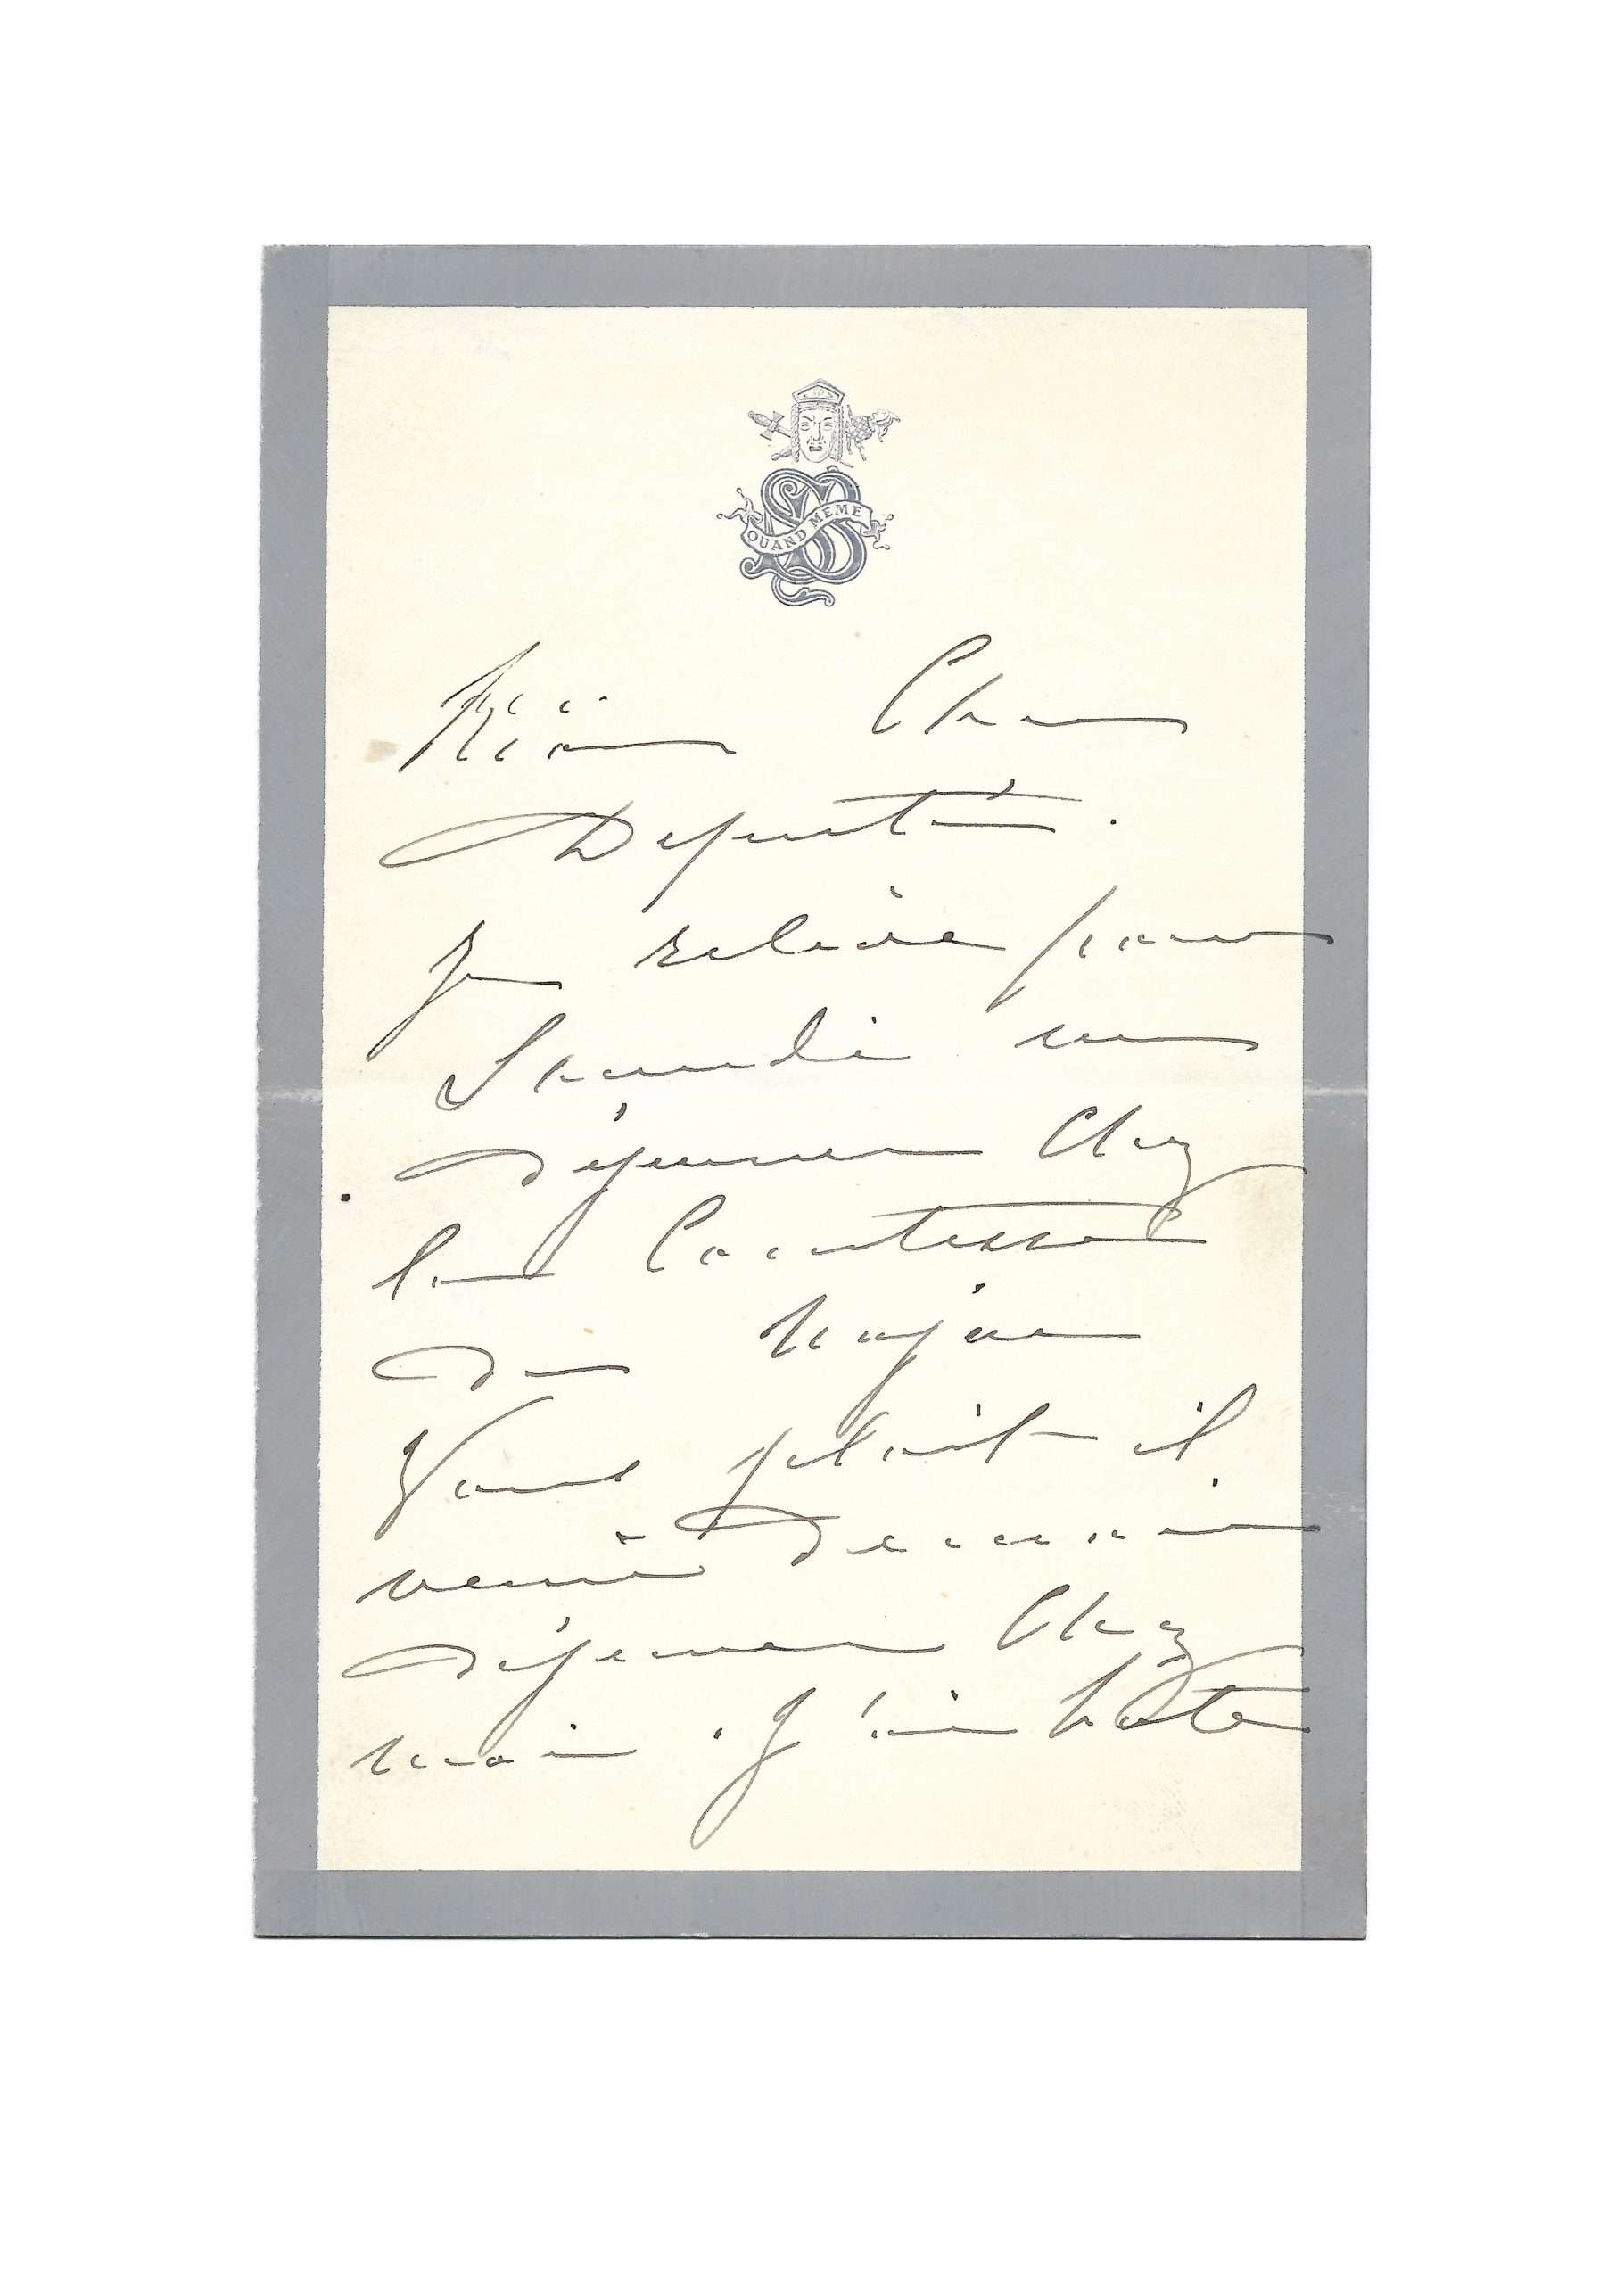 QUAND MEME
Mon Cher
Deputé.
Je relève pour
Samedi un
déjeuner chez
la Comtesse
de Najac
Vous plait il
venir demain
déjeuner chez
moi. J'ai hate